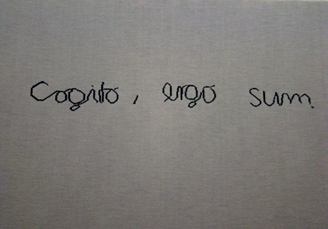 Cogito, ergo sum.